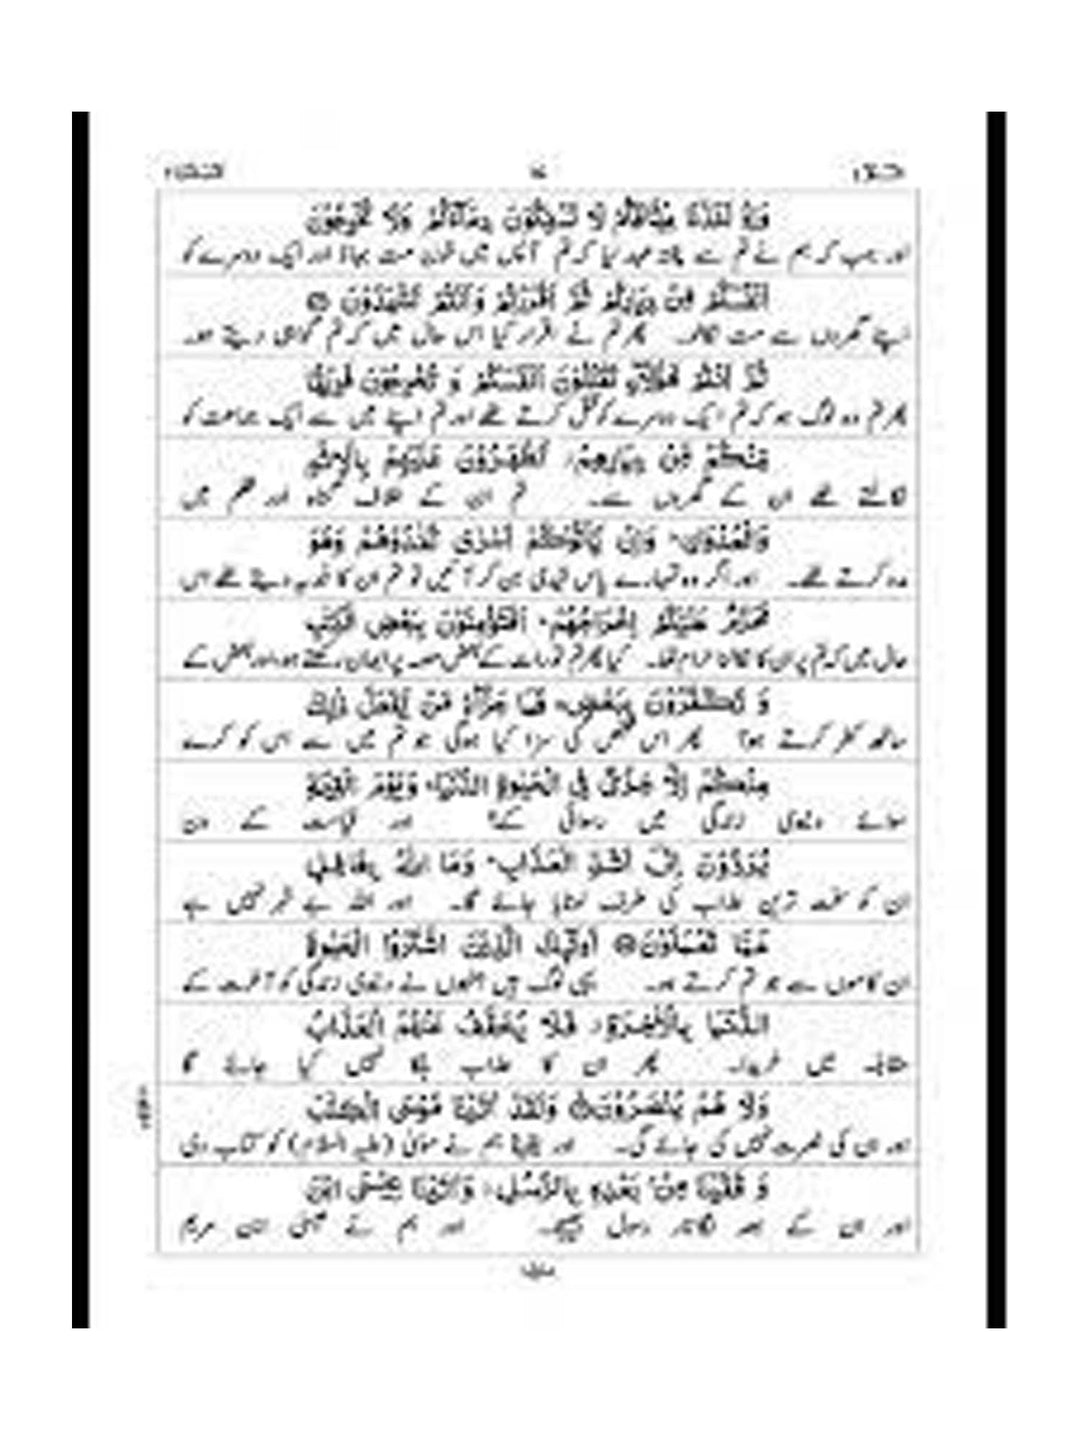 وَاِذْ اَخَذْنَا مِيْثَاقَكُمْ لَا تَسْفِكُوْنَ دِمَآءَكُمْ وَلَا تُخْرِجُوْنَ
اور جب کہ ہم نے تم سے پختہ عہد لیا کہ تم آپس میں خون مت بہاؤ اور ایک دوسرے کو
اَنْفُسَكُمْ مِّنْ دِيَارِكُمْ ثُمَّ اَقْرَرْتُمْ وَاَنْتُمْ تَشْهَدُوْنَ
اپنے گھروں سے مت نکالو۔ پھر تم نے اقرار کیا اس حال میں کہ تم گواہی دیتے ہو۔
ثُمَّ اَنْتُمْ هٰٓؤُلَآءِ تَقْتُلُوْنَ اَنْفُسَكُمْ وَ تُخْرِجُوْنَ فَرِيْقًا
پھر تم وہ لوگ ہو کہ تم ایک دوسرے کو قتل کرتے تھے اور تم اپنے میں سے ایک جماعت کو
مِّنْكُمْ مِّنْ دِيَارِهِمْ تَظٰهَرُوْنَ عَلَيْهِمْ بِالْاِثْمِ
نکالتے تھے ان کے گھروں سے۔ تم ان کے خلاف گناہ اور ظلم میں
وَالْعُدْوَانِ وَاِنْ يَّاْتُوْكُمْ اُسٰرٰى تُفٰدُوْهُمْ وَهُوَ
مدد کرتے تھے۔ اور اگر وہ تمہارے پاس قیدی بن کر آئیں تو تم ان کا فدیہ دیتے تھے اس
مُحَرَّمٌ عَلَيْكُمْ اِخْرَاجُهُمْ اَفَتُؤْمِنُوْنَ بِبَعْضِ الْكِتٰبِ
حال میں کہ تم پر ان کا نکالنا حرام تھا۔ کیا پھر تم تورات کے بعض حصہ پر ایمان رکھتے ہو اور بعض کے
وَ تَكْفُرُوْنَ بِبَعْضٍ فَمَا جَزَآءُ مَنْ يَّفْعَلُ ذٰلِكَ
ساتھ کفر کرتے ہو؟ پھر اس شخص کی سزا کیا ہوگی جو تم میں سے اس کو کرے
مِنْكُمْ اِلَّا خِزْيٌ فِى الْحَيٰوةِ الدُّنْيَا وَيَوْمَ الْقِيٰمَةِ
سوائے دنیوی زندگی میں رسوائی کے؟ اور قیامت کے دن
يُرَدُّوْنَ اِلٰٓى اَشَدِّ الْعَذَابِ وَمَا اللّٰهُ بِغَافِلٍ
ان کو سخت ترین عذاب کی طرف لوٹایا جائے گا۔ اور اللہ بے خبر نہیں ہے
عَمَّا تَعْمَلُوْنَ اُولٰٓئِكَ الَّذِيْنَ اشْتَرَوُا الْحَيٰوةَ
ان کاموں سے جو تم کرتے ہو۔ یہی لوگ ہیں جنہوں نے دنیوی زندگی کو آخرت کے
الدُّنْيَا بِالْاٰخِرَةِ فَلَا يُخَفَّفُ عَنْهُمُ الْعَذَابُ
مقابلہ میں خریدا۔ پھر ان کا عذاب ہلکا نہیں کیا جائے گا
وَلَا هُمْ يُنْصَرُوْنَ وَلَقَدْ اٰتَيْنَا مُوْسَى الْكِتٰبَ
اور ان کی نصرت نہیں کی جائے گی۔ اور یقیناً ہم نے موسیٰ (علیہ السلام) کو کتاب دی
وَ قَفَّيْنَا مِنْۢ بَعْدِهٖ بِالرُّسُلِ وَاٰتَيْنَا عِيْسَى ابْنَ
اور ان کے بعد لگاتار رسول بھیجے۔ اور ہم نے عیسیٰ ابن مریم